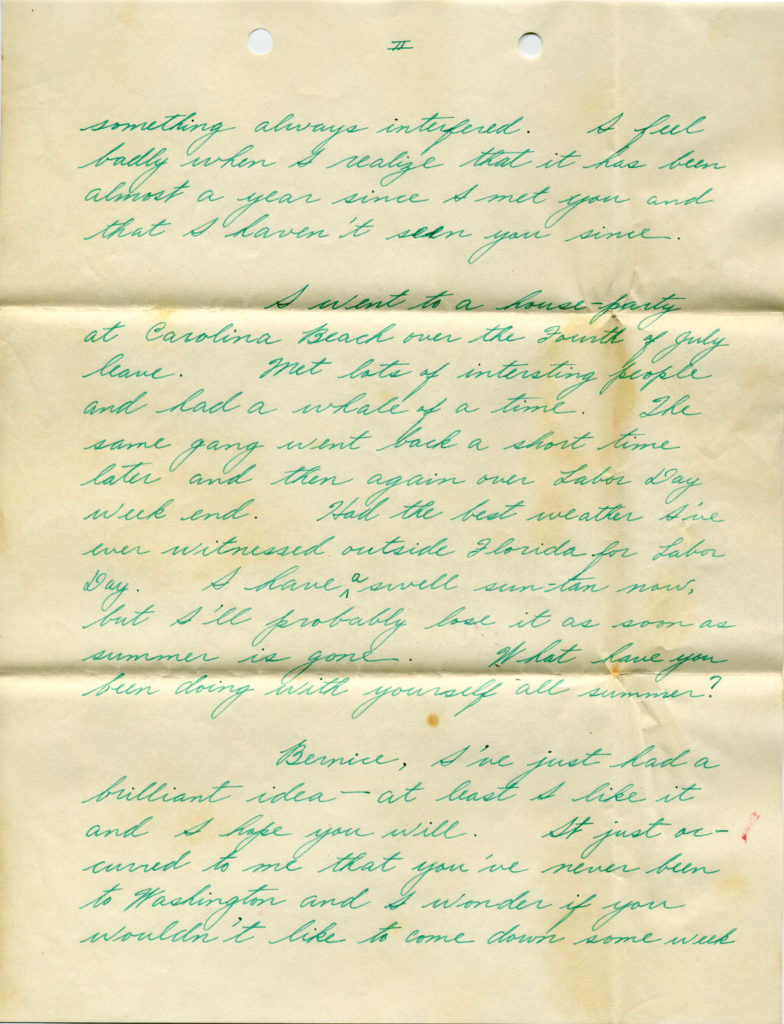 II
something always interfered. I feel
badly when I realize that it has been
almost a year since I met you and
that I haven't seen you since.
I went to a house-party
at Carolina Beach over the Fourth of July
leave. Met lots of intersting people
and had a whale of a time. The
same gang went back a short time
later and then again over Labor Day
week end. Had the best weather I've
ever witnessed outside Florida for Labor
Day. I have a swell sun-tan now,
but I'll probably lose it as soon as
summer is gone. What have you
been doing with yourself all summer?
Bernice, I've just had a
brilliant idea — at least I like it
and I hope you will. It just oc-
curred to me that you've never been
to Washington and I wonder if you
wouldn't like to come down some week